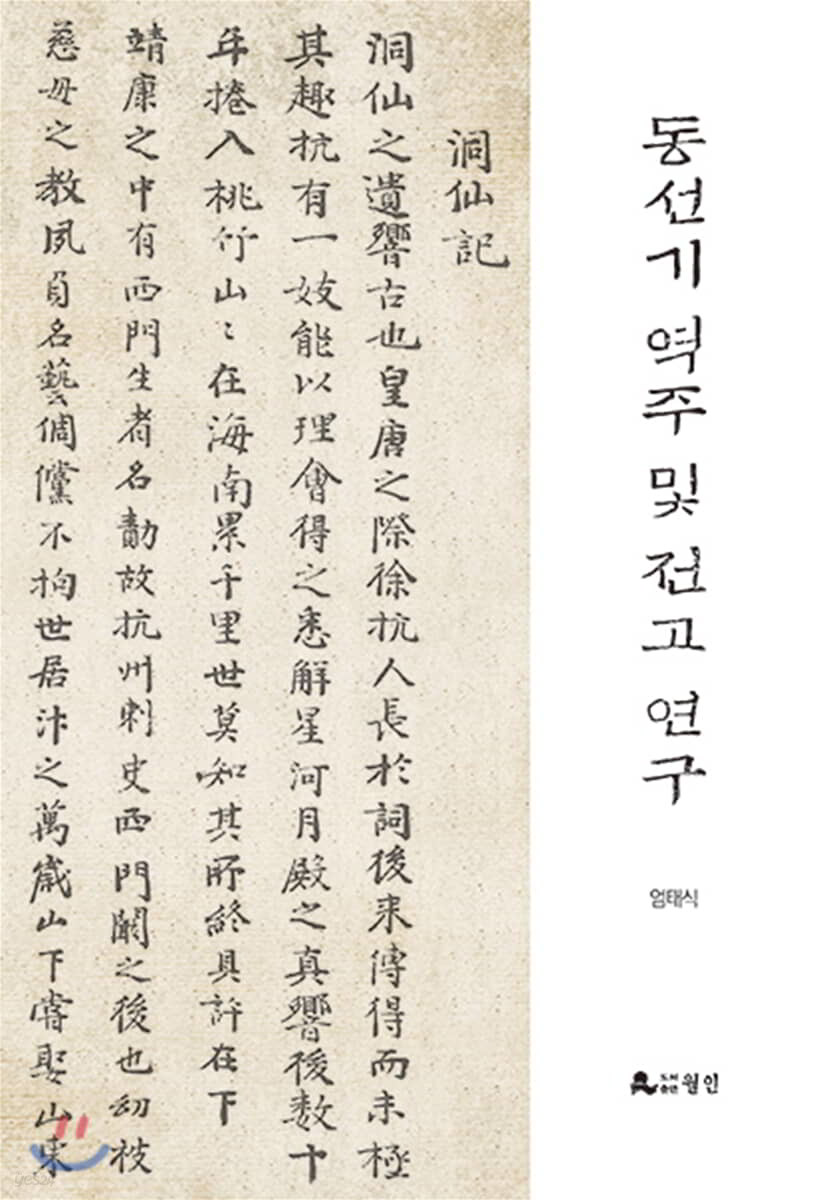 洞仙記
洞仙之遺響古也皇唐之際徐抗人長於詞後来傳得而未極
其趣抗有一妓能以理會得之悉解星河月殿之真響後数十
年捲入桃竹山〻在海南累千里世莫知其所終具許在下
靖康之中有西門生者名勣故抗州刺史西門闕之後也幼被
慈母之教夙負名藝倜儻不拘世居汴之萬歲山下嘗娶山東
동선기 역주 및 전고 연구
엄태식
도서출판 월인
yes24